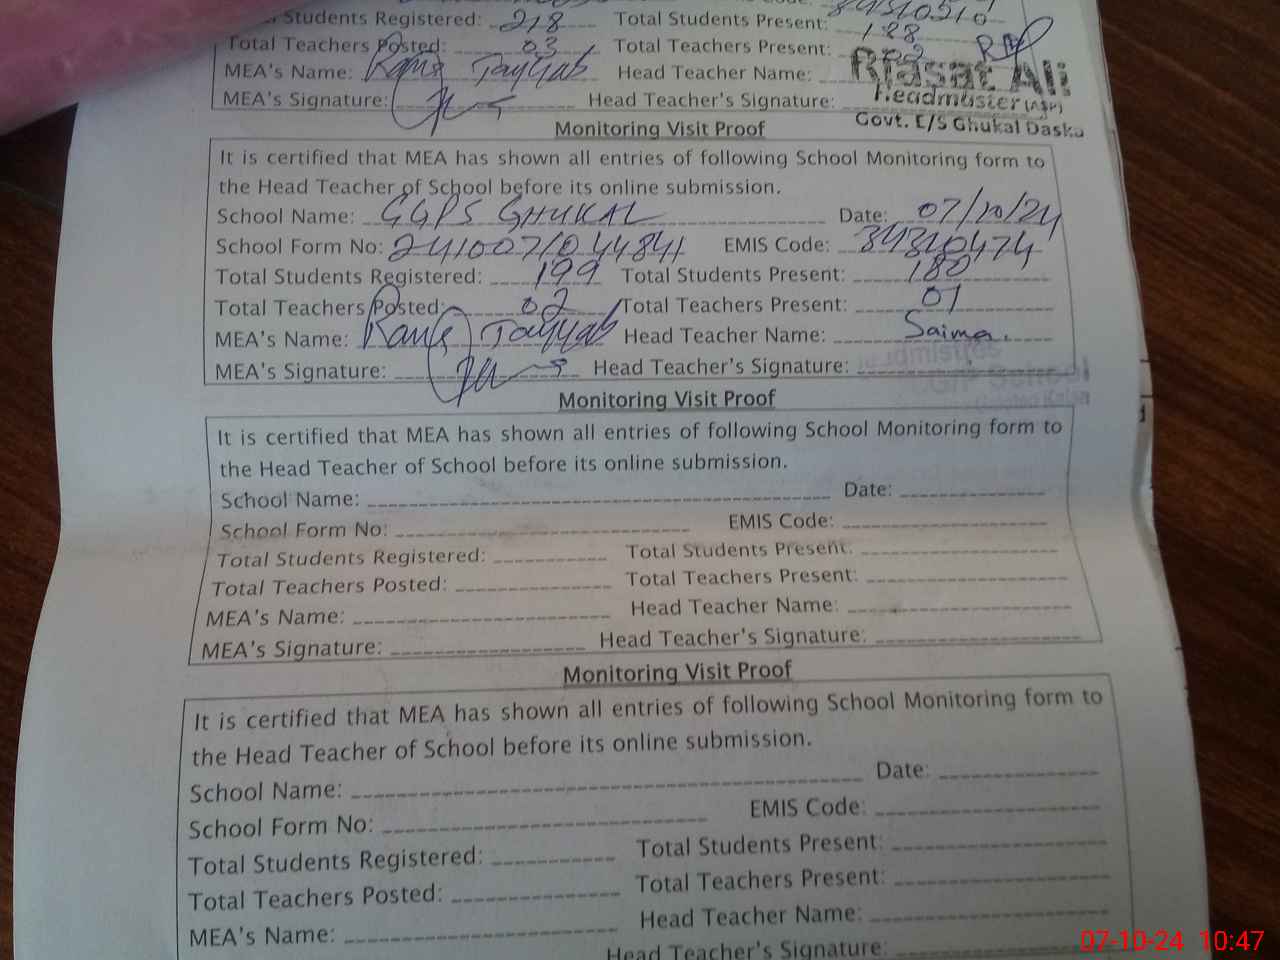 Total Students Registered: 218 Total Students Present: 188
Total Teachers Posted: 03 Total Teachers Present:
MEA's Name: Rana Tayyab Head Teacher Name:
MEA's Signature: Head Teacher's Signature:
Riasat Ali
Headmaster
Govt. E/S Ghukal Daska
Monitoring Visit Proof
It is certified that MEA has shown all entries of following School Monitoring form to
the Head Teacher of School before its online submission.
School Name: GGPS GHUKAL Date: 07/10/24
School Form No: 2410071044841 EMIS Code: 34310474
Total Students Registered: 199 Total Students Present: 180
Total Teachers Posted: 02 Total Teachers Present: 01
MEA's Name: Rana Tayyab Head Teacher Name: Saima.
MEA's Signature: Head Teacher's Signature:
Monitoring Visit Proof
It is certified that MEA has shown all entries of following School Monitoring form to
the Head Teacher of School before its online submission.
School Name: Date:
School Form No: EMIS Code:
Total Students Registered: Total Students Present:
Total Teachers Posted: Total Teachers Present:
MEA's Name: Head Teacher Name:
MEA's Signature: Head Teacher's Signature:
Monitoring Visit Proof
It is certified that MEA has shown all entries of following School Monitoring form to
the Head Teacher of School before its online submission.
School Name: Date:
School Form No: EMIS Code:
Total Students Registered: Total Students Present:
Total Teachers Posted: Total Teachers Present:
MEA's Name: Head Teacher Name:
Head Teacher's Signature:
07-10-24 10:47